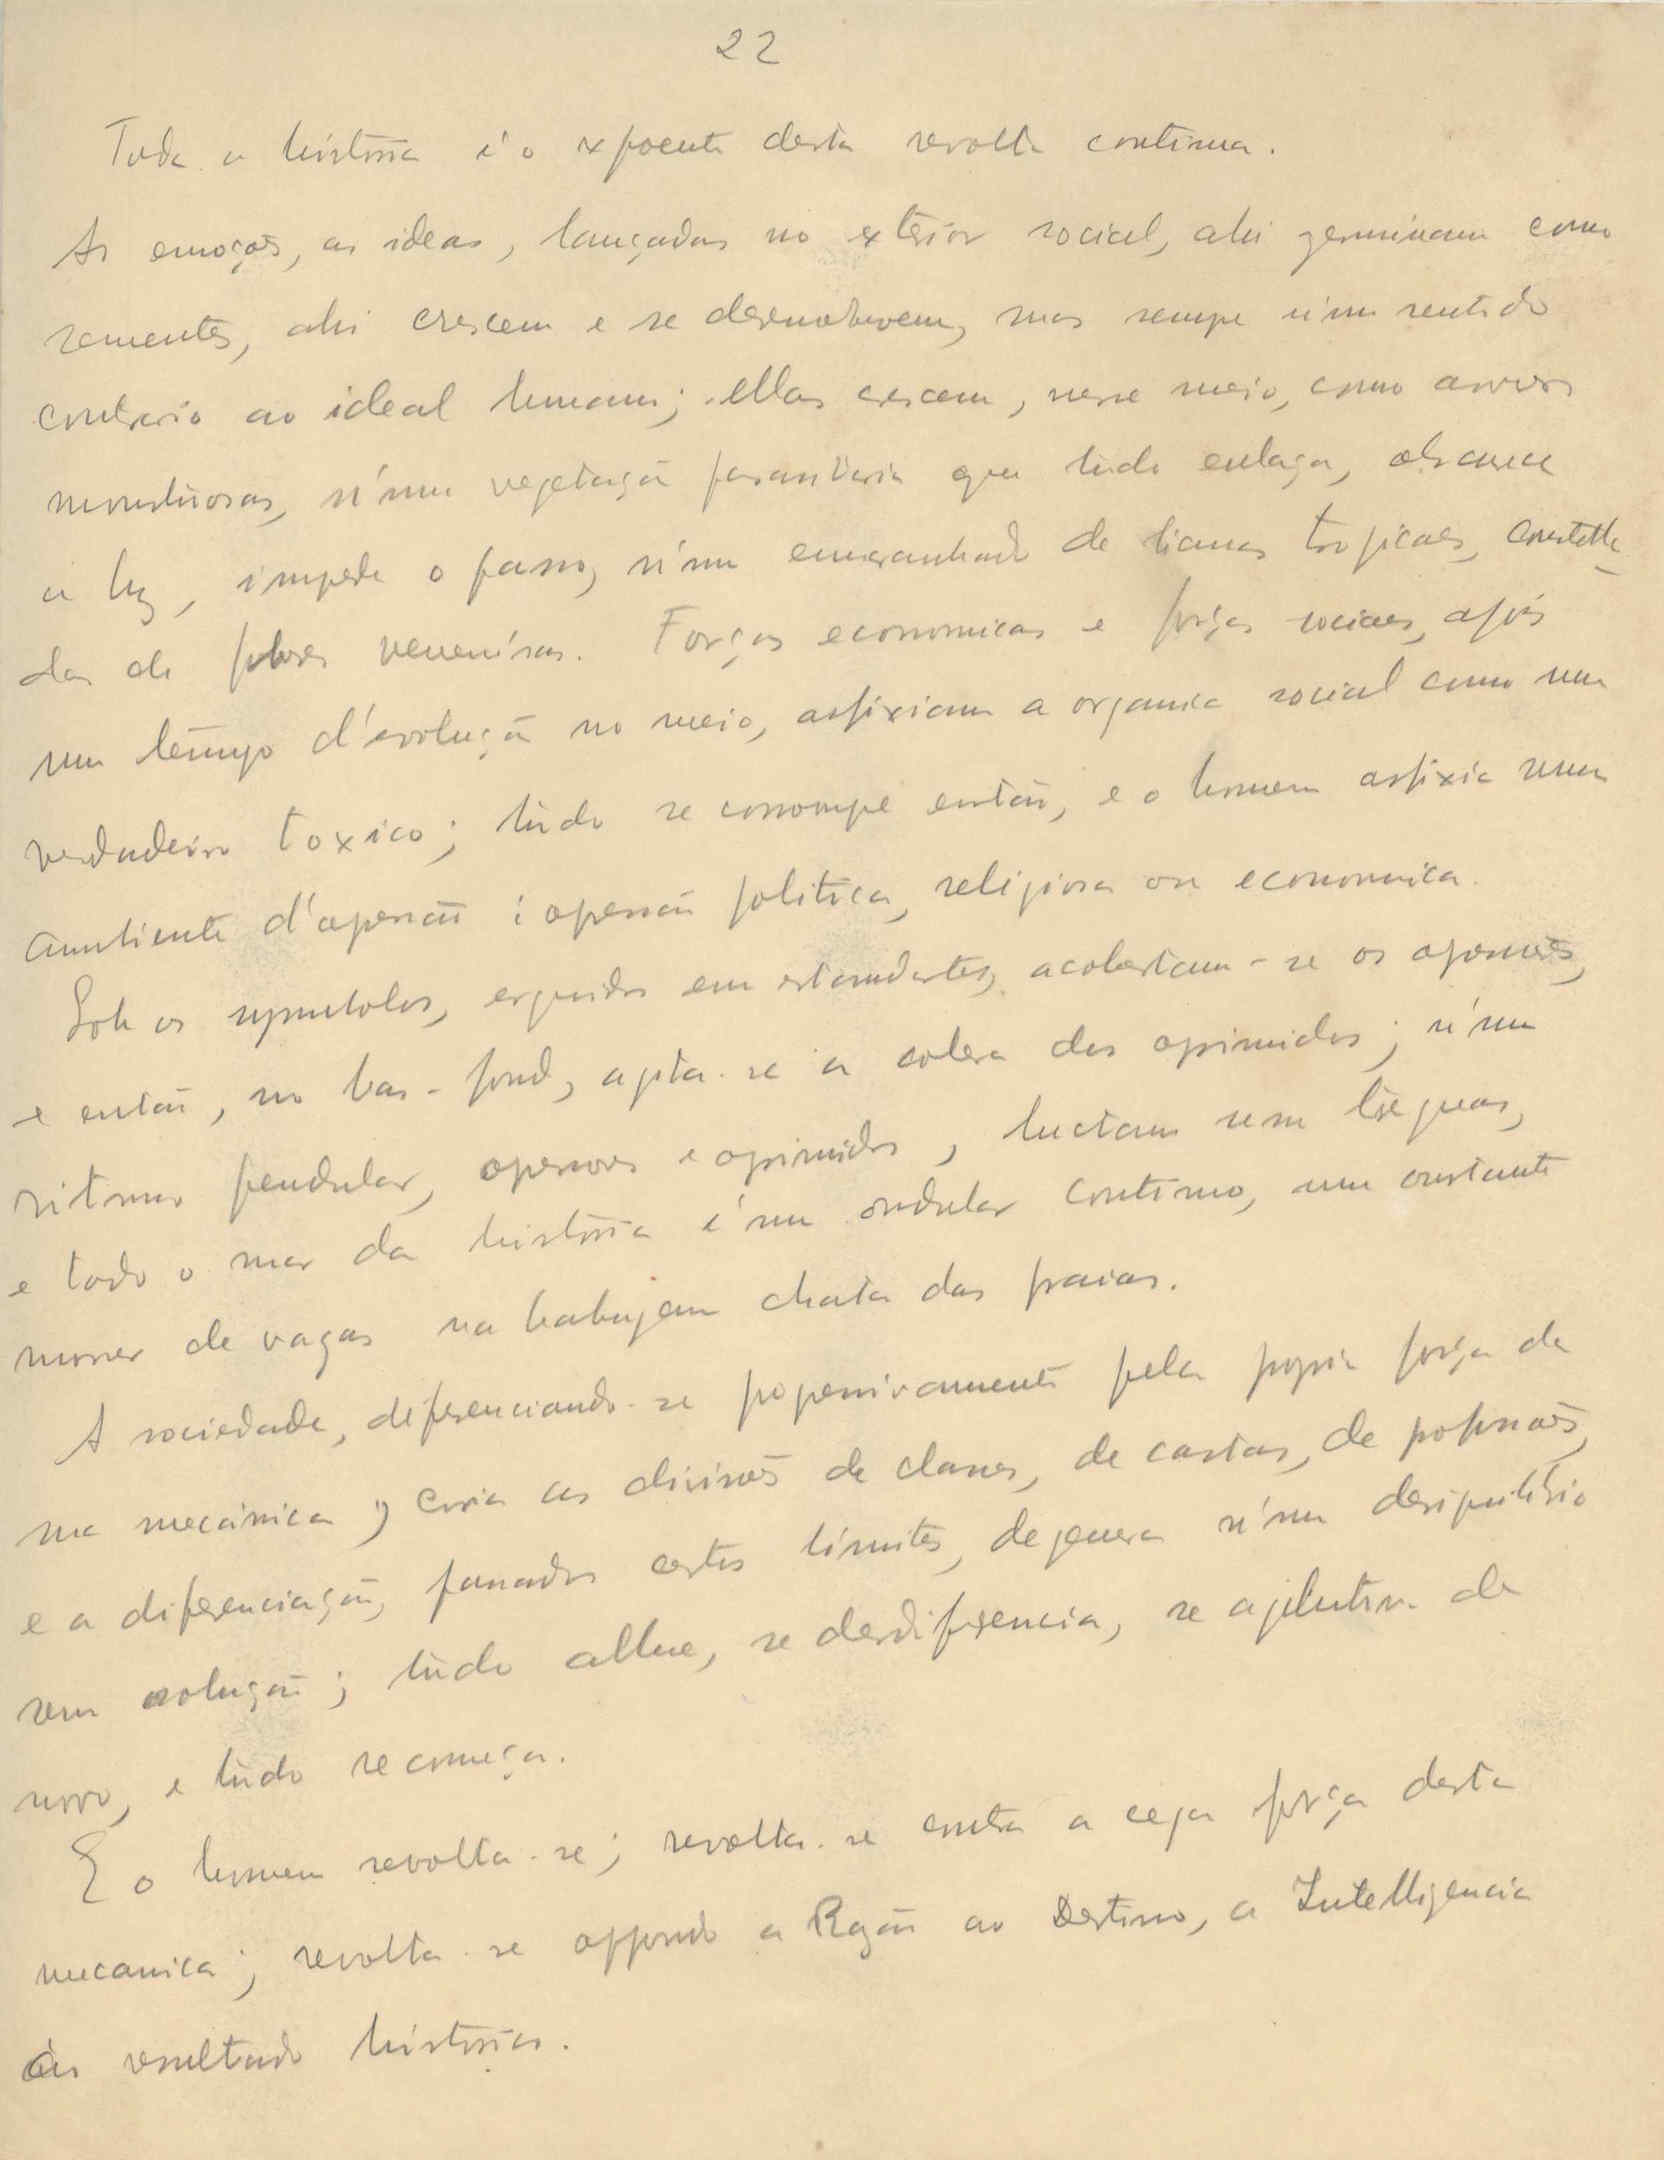 22
Toda a história é o expoente desta revolta continua.
As emoções, as ideas, lançadas no exterior social, ahi germinam como
sementes, ahi crescem e se desenvolvem, mas sempre n'um sentido
contrario ao ideal humano; ellas crescem, nesse meio, como arvores
monstruosas, n'uma vegetação parasitaria que tudo enlaça, obscurece
a luz, impede o passo, n'um emaranhado de lianas tropicaes, constella-
das de flores venenosas. Forças economicas e forças sociaes, após
um tempo d'evolução no meio, asfixiam a organica social como um
verdadeiro toxico; tudo se corrompe então, e o homem asfixia num
ambiente d'opressão: opressão politica, religiosa ou economica.
Sob os symbolos, erguidos em estandartes, acobertam-se os opressores,
e então, no bas-fond, agita-se a colera dos oprimidos; n'um
ritmo pendular, opressores e oprimidos, luctam sem treguas,
e todo o mar da história é um ondular continuo, um constante
morrer de vagas na babugem chata das praias.
A sociedade, diferenciando-se progressivamente pela propria força da
sua mecánica, cria as divisões de classes, de castas, de profissões,
e a diferenciação, passados certos limites, degenera n'um desiquilibrio
sem solução; tudo allue, se desdiferencia, se aglutina de
novo, e tudo recomeça.
E o homem revolta-se; revolta-se contra a cega força desta
mecanica; revolta-se oppondo a Razão ao Destino, a Intelligencia
ao resultado historico.